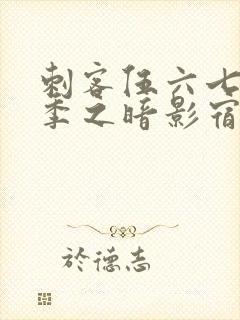 刺客伍六七
季之暗影宿
於德志